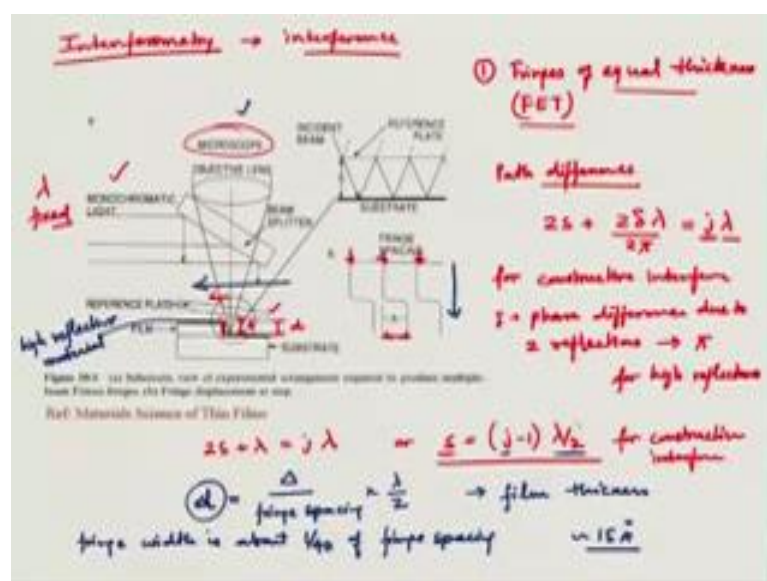 Interferometry → interference
① Fringes of equal thickness
(FET)
MICROSCOPE
OBJECTIVE LENS
INCIDENT
BEAM
REFERENCE
PLATE
SUBSTRATE
λ
fixed
MONOCHROMATIC
LIGHT
BEAM
SPLITTER
FRINGE
SPACING
REFERENCE FLAT
FILM
SUBSTRATE
d
high reflective
material
Path difference
2s + 2δλ/2π = jλ
for constructive interfern
δ → phase difference due to
2 reflections → π
for high reflective
Figure (a) Schematic view of experimental arrangement required to produce multiple-
beam Fizeau fringes. (b) Fringe displacement at step.
Ref: Materials Science of Thin Films
2s + λ = jλ or s = (j-1) λ/2 for constructive
interfern
d = Δ/fringe spacing × λ/2 → film thickness
fringe width is about 1/40 of fringe spacing ~ 15 Å